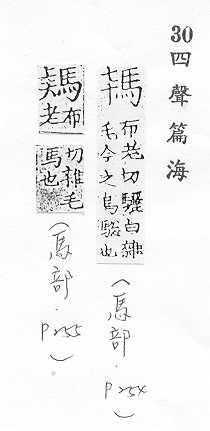 30四聲篇海
布老切驪白雜
毛今之烏驄也
(馬部．P254)
布
老
切雜毛
馬也
(馬部．P255)